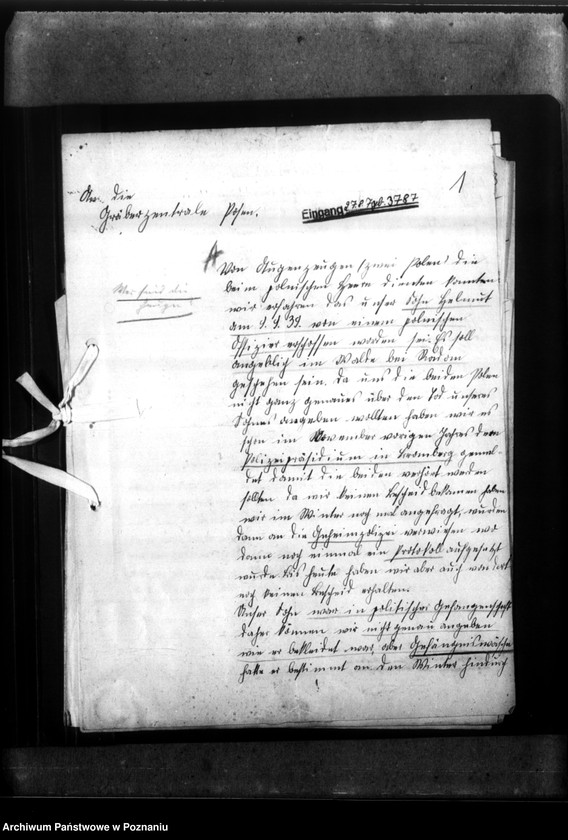 1
An die
Gräberzentrale Posen.
Eingang 27.8. 3787
Wer sind die
Zeugen?
Von Augenzeugen (zwei Polen) die
beim polnischen Heere dienten konnten
wir erfahren das unser Sohn Helmut
am 9.9.39. von einem polnischen
Offizier erschossen worden sei. Es soll
angeblich im Walde bei Radom
geschehen sein. Da uns die beiden Polen
nicht ganz genaues über den Tod unseres
Sohnes angeben wollten haben wir es
schon im November vorigen Jahres dem
Polizeipräsidium in Bromberg gemel-
det damit die beiden verhört werden
sollten da wir keinen Bescheid bekamen haben
wir im Winter noch mal angefragt, wurden
dann an die Geheimpolizei verwiesen wo
dann noch einmal ein Protokoll aufgesetzt
wurde bis heute haben wir aber auch von dort
noch keinen Bescheid erhalten.
Unser Sohn war in politischer Gefangenschaft
daher können wir nicht genau angeben
wie er bekleidet war, aber Gefängniswäsche
hatte er bestimmt an den Winter hindurch
Archiwum Państwowe w Poznaniu